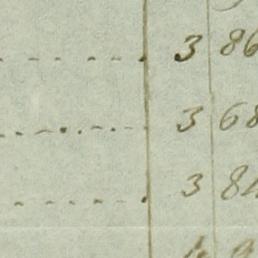 3 86
3 68
3 84